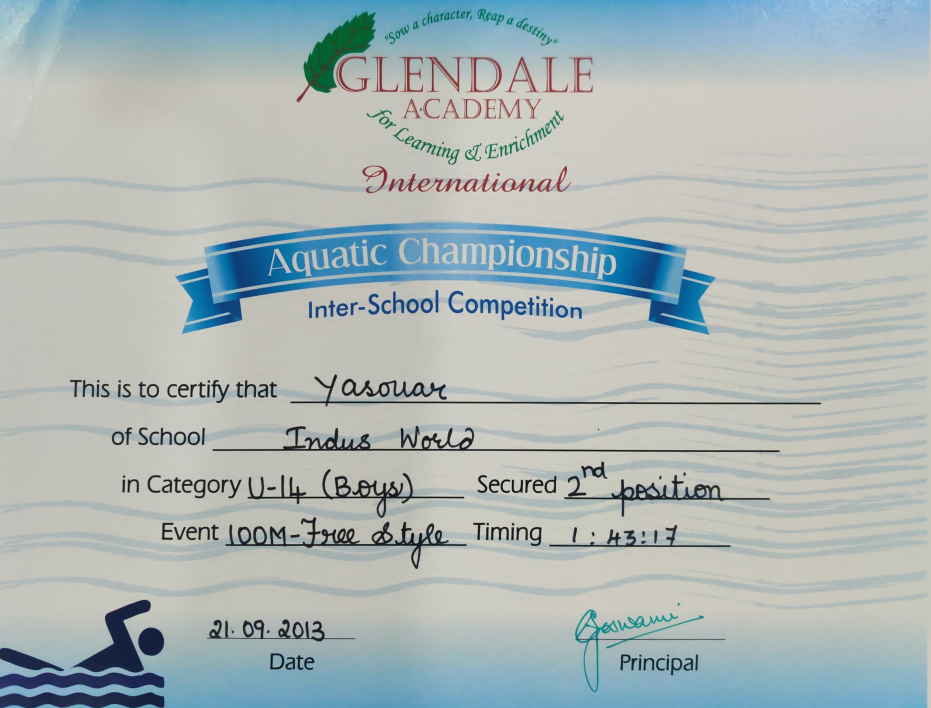 "Sow a character, Reap a destiny"
GLENDALE
ACADEMY
for Learning & Enrichment
International
Aquatic Championship
Inter-School Competition
This is to certify that Yasouar
of School Indus World
in Category U-14 (Boys) Secured 2nd position
Event 100M-Free Style Timing 1:43:17
21.09.2013 Goswami
Date Principal